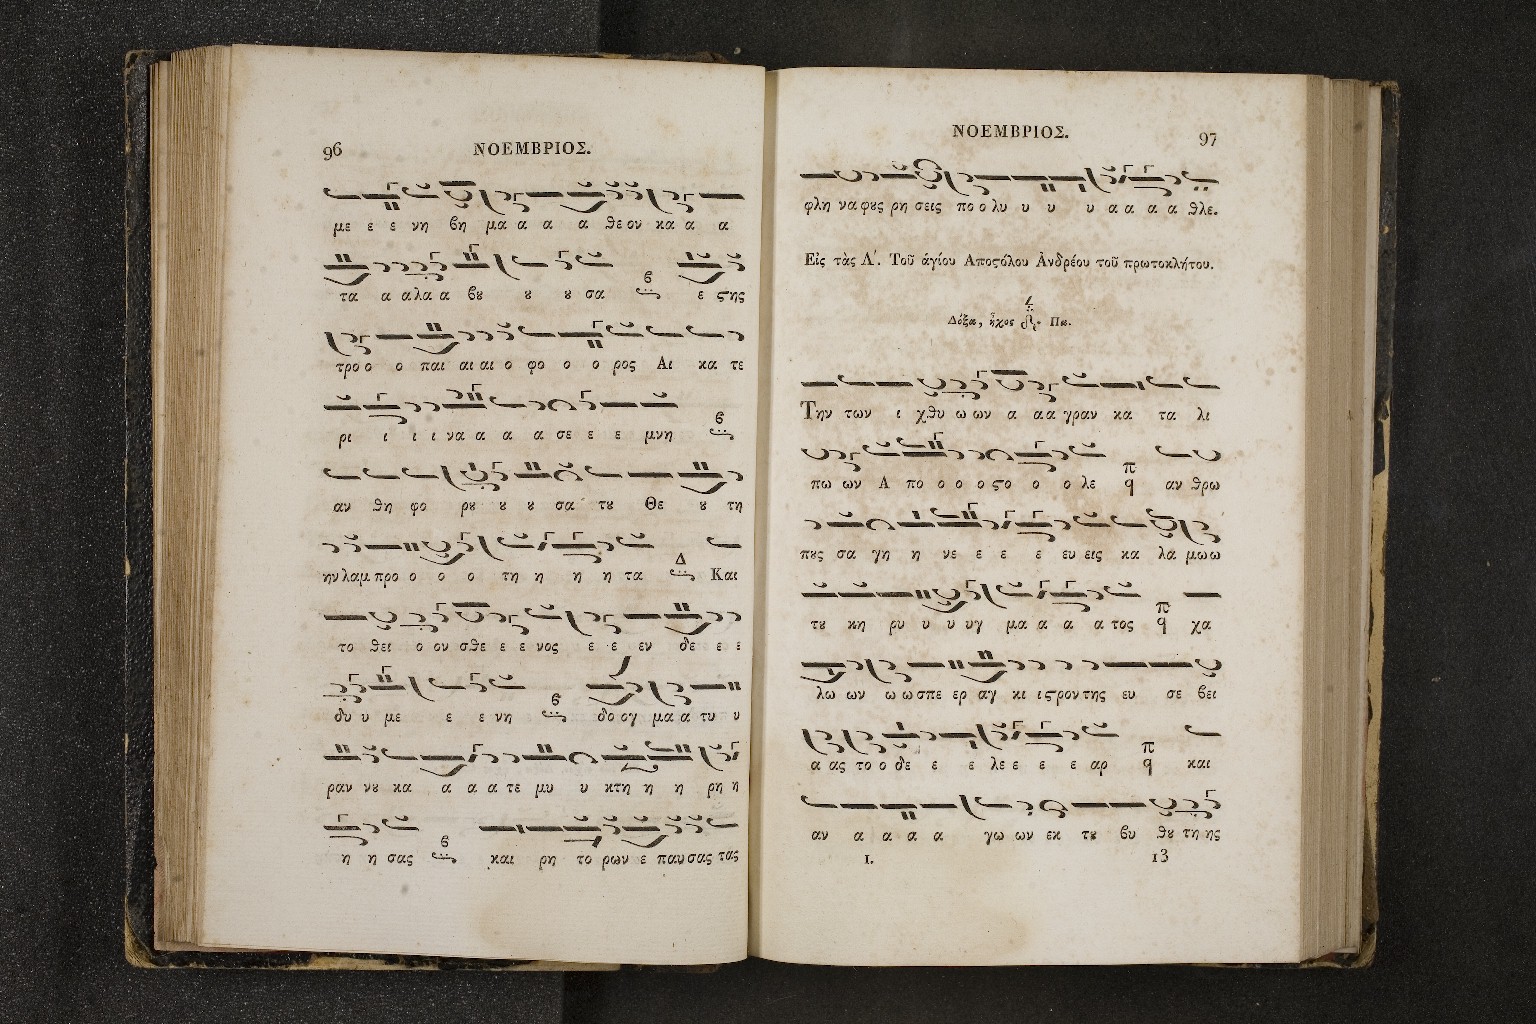 96
ΝΟΕΜΒΡΙΟΣ.
με ε ε νη βη μα α α α α θε ον κα α α
τα α α λα α βȣ ȣ ȣ σα β ε ςης
τρο ο ο παι αι αι αι ο φο ο ο ρος Αι κα τε
ρι ι ι ι να α α α σε ε ε μνη β
αν θη φο ρȣ ȣ ȣ ȣ σα τȣ Θε ȣ τη
ην λαμ προ ο ο ο τη η η η τα Δ Και
το θει ο ον σθε ε ε νος ε ε εν δε ε ε
δυ υ με ε ε νη β δο ογ μα α τυ υ
ραν νȣ κα α α α τε μυ υ κτη η η ρη η
η η σας β και ρη το ρων ε παυ σας τας
ΝΟΕΜΒΡΙΟΣ.
97
φλη να φȣς ρη σεις πο ο λυ υ υ υ α α α α θλε.
Εἰς τὰς Λ΄. Τοῦ ἁγίου Αποςόλου Ανδρέου τοῦ πρωτοκλήτου.
Δόξα, ἦχος Πα.
Την των ι χθυ ω ων α α α γραν κα τα λι
πω ων Α πο ο ο ο ςο ο ο λε π q αν θρω
πȣς σα γη η νε ε ε ε ευ εις κα λα μω ω
τȣ κη ρυ υ υ υγ μα α α α τος π q χα
λω ων ω ω σπε ερ αγ κι ι ςρον της ευ σε βει
α ας το ο δε ε ε λε ε ε ε αρ π q και
αν α α α α γω ων εκ τȣ βυ θȣ τη ης
I. 13